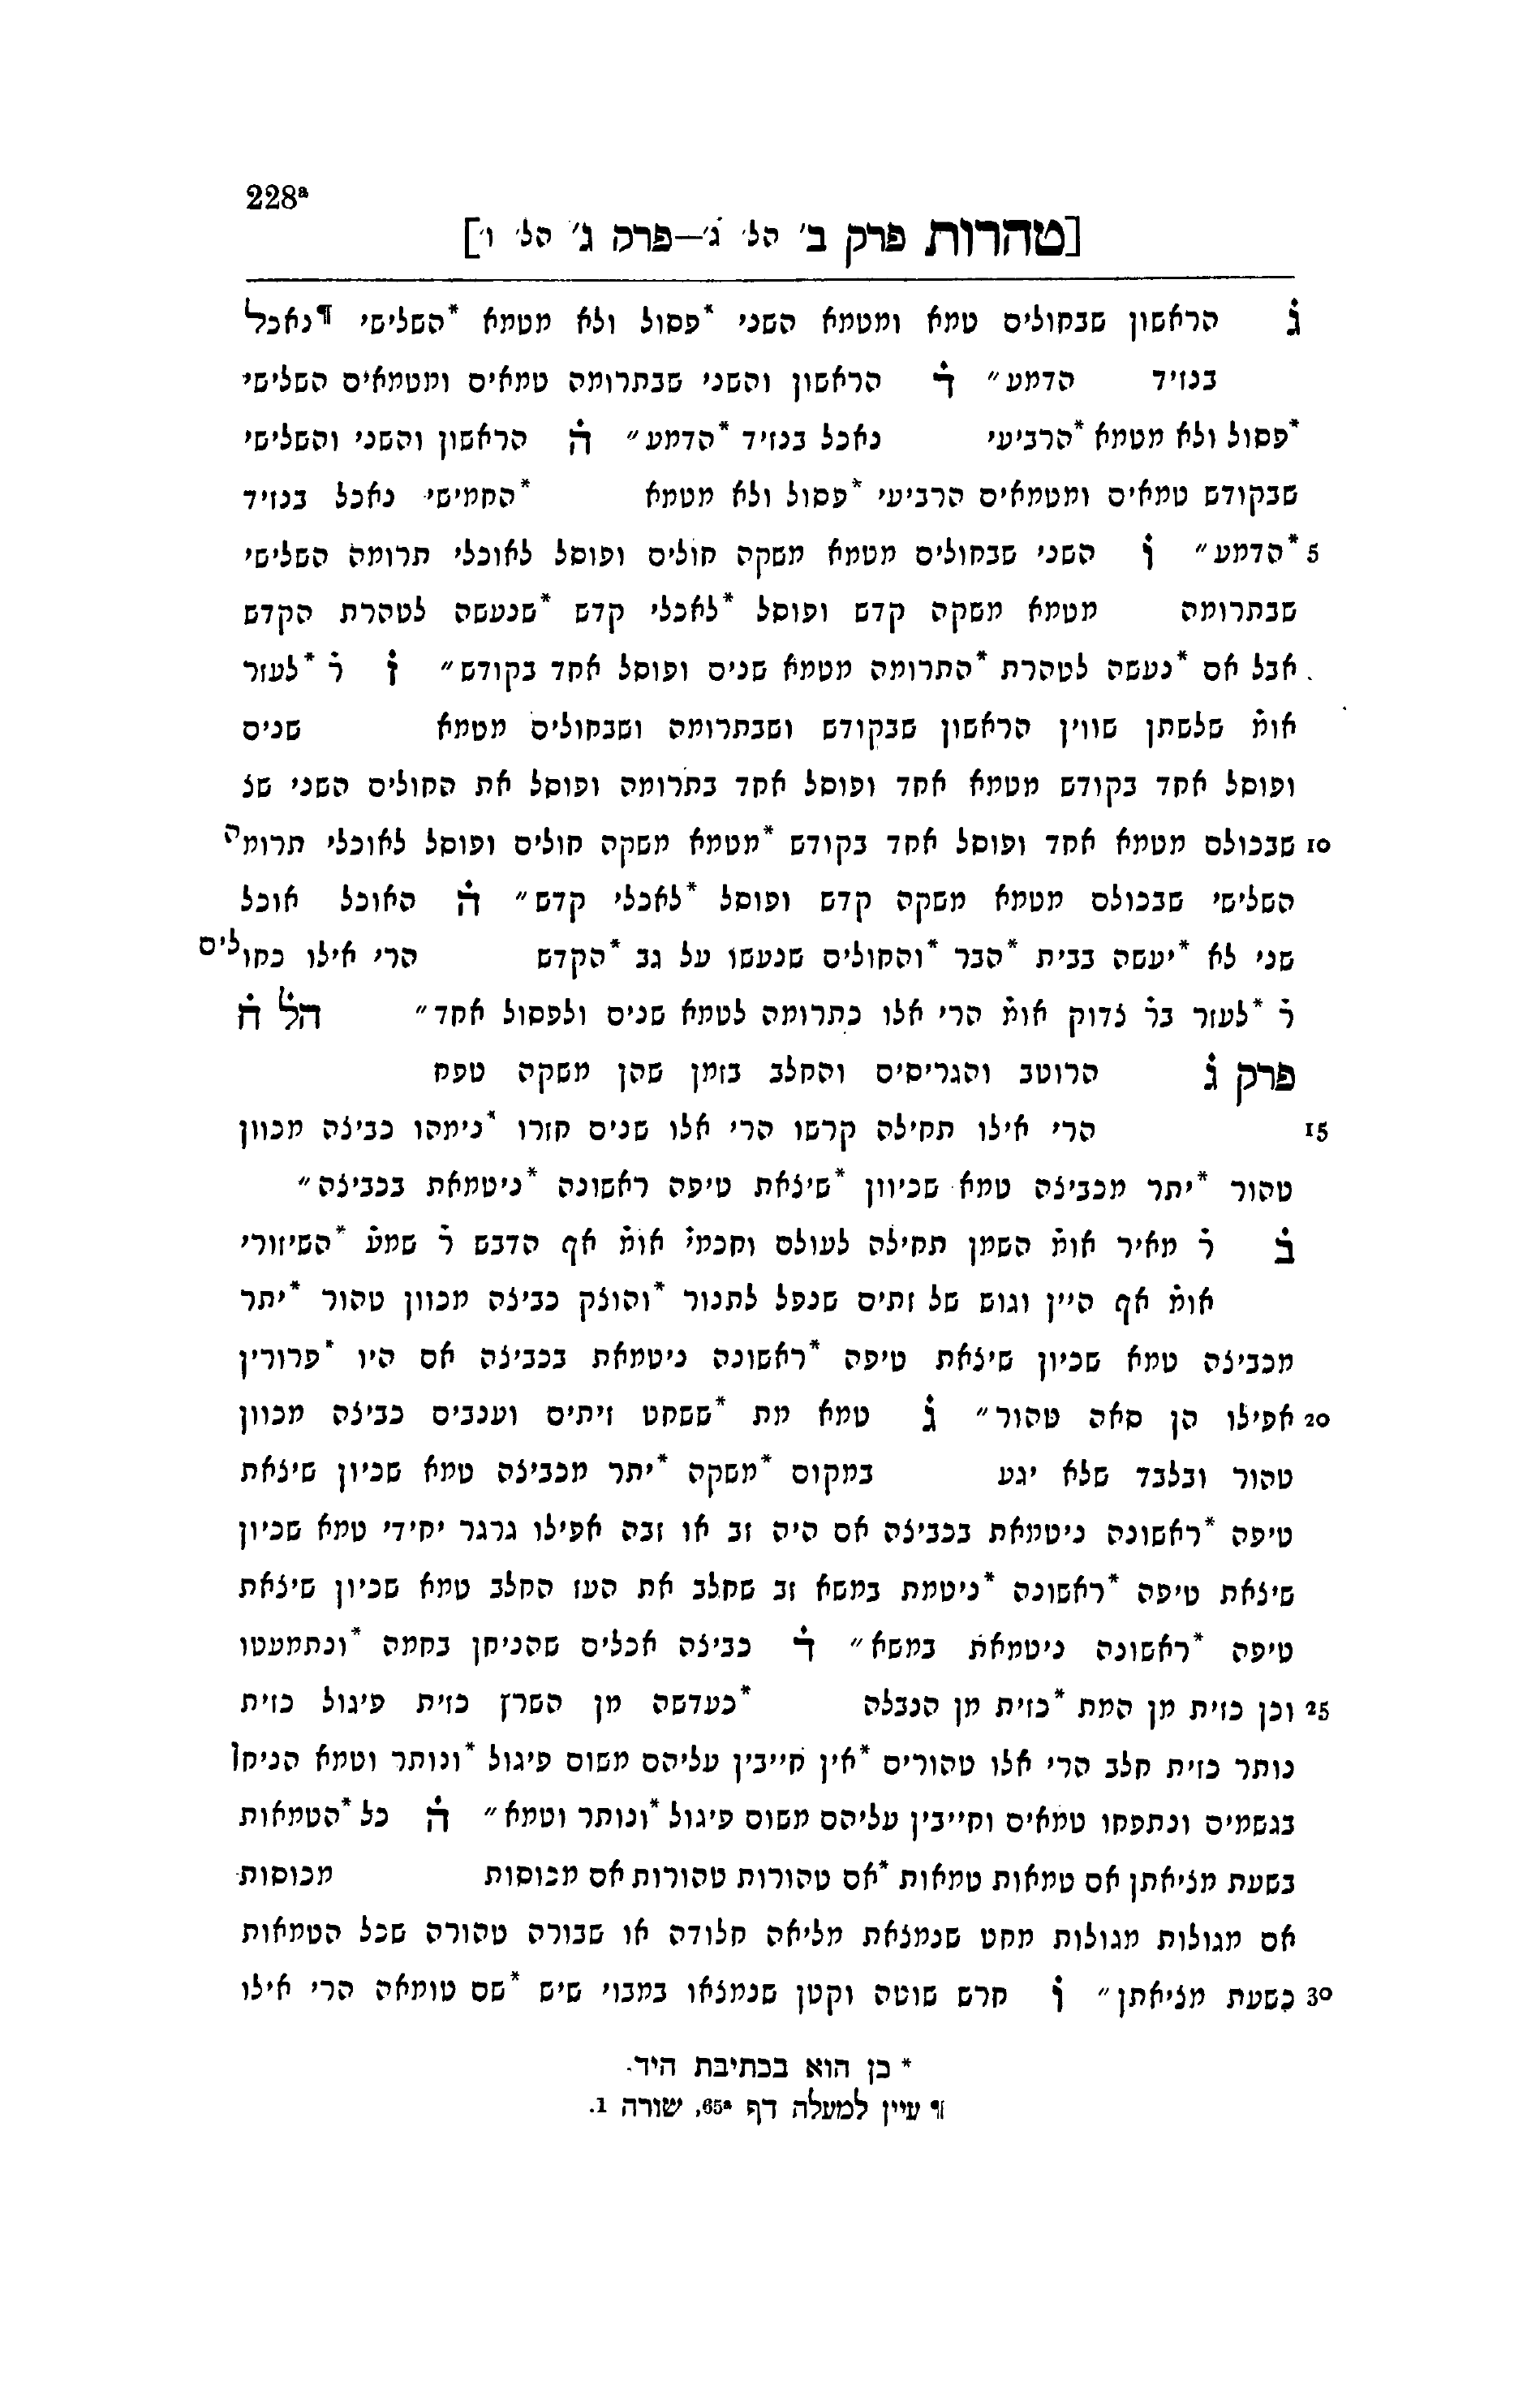 228ª
[טהרות פרק ב׳ הל׳ ג׳—פרק ג׳ הל׳ ו׳]
ג̇ הראשון שבחולים טמא ומטמא השני *פסול ולא מטמא *השלישי ¶נאכל
בנזיד הדמע״ ד̇ הראשון והשני שבתרומה טמאים ומטמאים השלישי
*פסול ולא מטמא *הרביעי נאכל בנזיד *הדמע״ ה̇ הראשון והשני והשלישי
שבקודש טמאים ומטמאים הרביעי *פסול ולא מטמא *החמישי נאכל בנזיד
5 *הדמע״ ו̇ השני שבחולים מטמא משקה חולים ופוסל לאוכלי תרומה השלישי
שבתרומה מטמא משקה קדש ופוסל *לאכלי קדש *שנעשה לטהרת הקדש
אבל אם *נעשה לטהרת *התרומה מטמא שנים ופוסל אחד בקודש״ ז̇ ר̇ *לעזר
אומ̇ שלשתן שווין הראשון שבקודש ושבתרומה ושבחולים מטמא שנים
ופוסל אחד בקודש מטמא אחד ופוסל אחד בתרומה ופוסל את החולים השני שצ
10 שבכולם מטמא אחד ופוסל אחד בקודש *מטמא משקה חולים ופוסל לאוכלי תרומה
השלישי שבכולם מטמא משקה קדש ופוסל *לאכלי קדש״ ח̇ האוכל אוכל
שני לא *יעשה בבית *הבר *והחולים שנעשו על גב *הקדש הרי אילו כחולים
ר̇ *לעזר בר̇ צדוק אומ̇ הרי אלו כתרומה לטמא שנים ולפסול אחד״ הל̇ ח̇
פרק ג̇ הרוטב והגריסים והחלב בזמן שהן משקה טפח
15 הרי אילו תחילה קרשו הרי אלו שנים חזרו *נימהו כביצה מכוון
טהור *יתר מכביצה טמא שכיוון *שיצאת טיפה ראשונה *ניטמאת בכביצה״
ב̇ ר̇ מאיר אומ̇ השמן תחילה לעולם וחכמי̇ אומ̇ אף הדבש ר̇ שמע̇ *השיזורי
אומ̇ אף היין וגוש של זתים שנפל לתנור *והוצק כביצה מכוון טהור *יתר
מכביצה טמא שכיון שיצאת טיפה *ראשונה ניטמאת בכביצה אם היו *פרורין
20 אפילו הן סאה טהור״ ג̇ טמא מת *ששחט זיתים וענבים כביצה מכוון
טהור ובלבד שלא יגע במקום *משקה *יתר מכביצה טמא שכיון שיצאת
טיפה *ראשונה ניטמאת בכביצה אם היה זב או זבה אפילו גרגר יחידי טמא שכיון
שיצאת טיפה *ראשונה *ניטמת במשא זב שחלב את העז החלב טמא שכיון שיצאת
טיפה *ראשונה ניטמאת במשא״ ד̇ כביצה אכלים שהניחן בחמה *ונתמעטו
25 וכן כזית מן המת *כזית מן הנבלה *כעדשה מן השרץ כזית פיגול כזית
נותר כזית חלב הרי אלו טהורים *אין חייבין עליהם משום פיגול *ונותר וטמא הניחן
בגשמים ונתפחו טמאים וחייבין עליהם משום פיגול *ונותר וטמא״ ה̇ כל *הטמאות
בשעת מציאתן אם טמאות טמאות *אם טהורות טהורות אם מכוסות מכוסות
אם מגולות מגולות מחט שנמצאת מליאה חלודה או שבורה טהורה שכל הטמאות
30 כשעת מציאתן״ ו̇ חרש שוטה וקטן שנמצאו במבוי שיש *שם טומאה הרי אילו
* כן הוא בכתיבת היד.
¶ עיין למעלה דף 65ª, שורה 1.